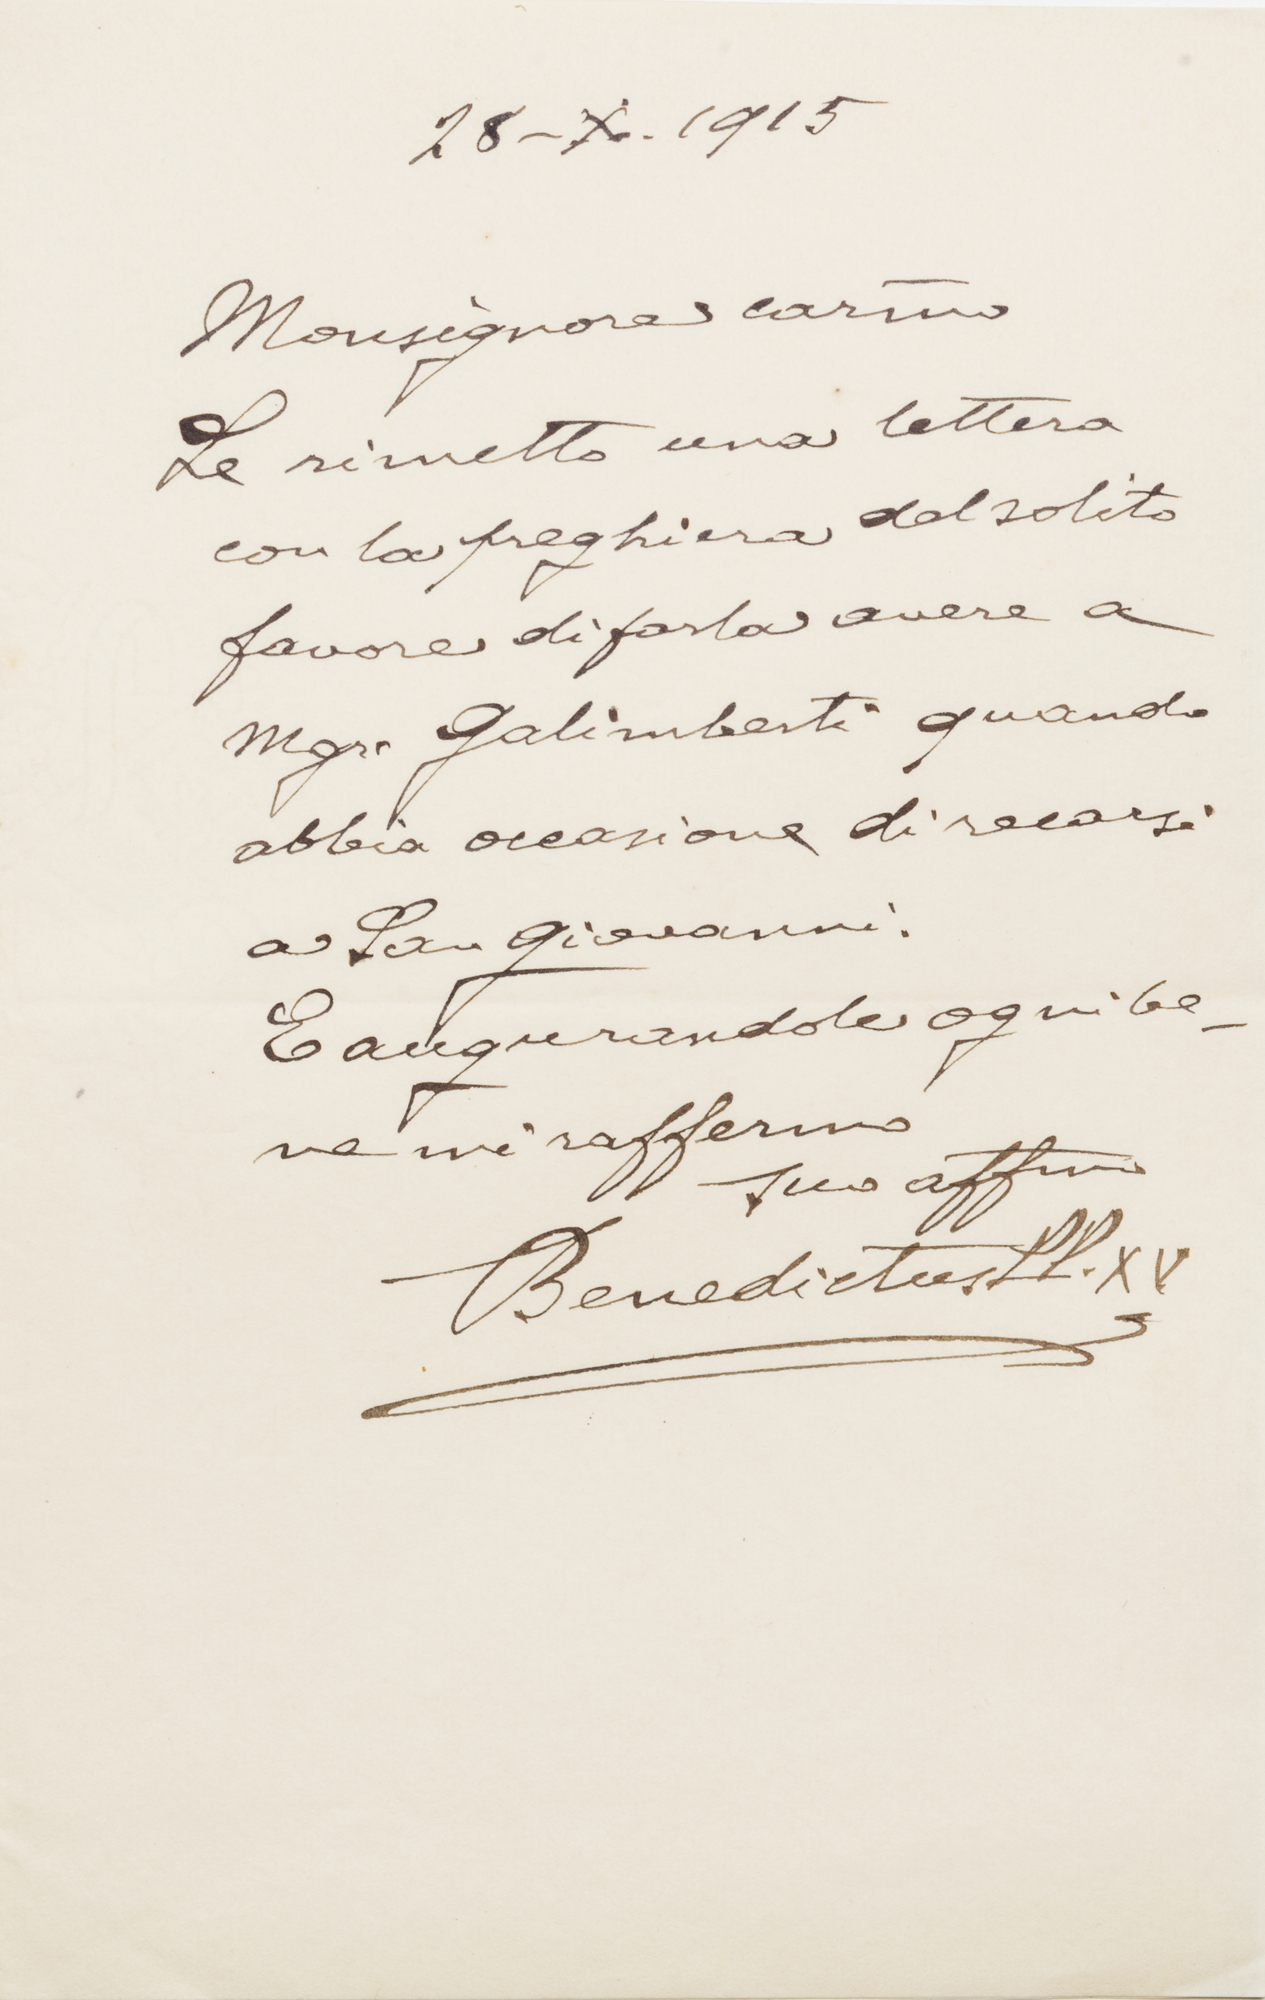 28-X.1915
Monsignore carmo
Le rimetto una lettera
con la preghiera del solito
favore di farla avere a
Mgr. Galimberti quando
abbia occasione di recarsi
a San Giovanni.
E augurandole ogni be-
ne mi raffermo
suo affmo
Benedictus PP. XV